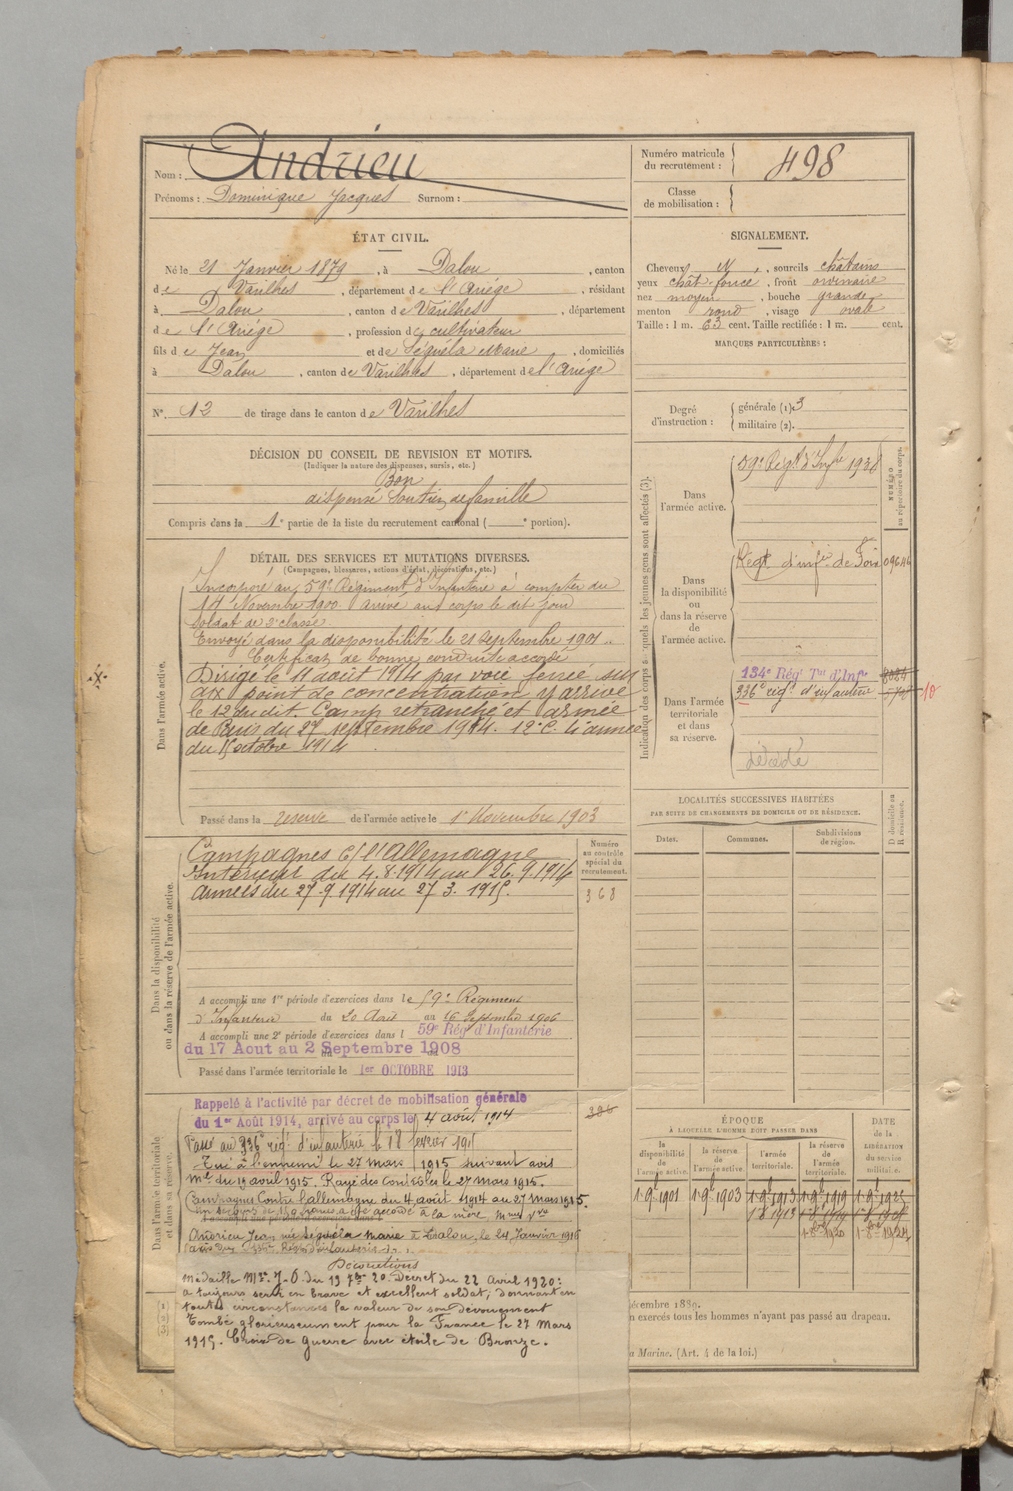 Nom : Andrieu
Prénoms : Dominique Jacques Surnom :
Numéro matricule du recrutement : 498
Classe de mobilisation :
ÉTAT CIVIL.
Né le 21 Janvier 1879, à Dalou, canton
de Varilhes, département de l'Ariége, résidant
à Dalou, canton de Varilhes, département
de l'Ariége, profession de cultivateur
fils de Jean et de Séguéla Marie, domiciliés
à Dalou, canton de Varilhes, département de l'Ariége
N°. 12 de tirage dans le canton de Varilhes
SIGNALEMENT.
Cheveux N, sourcils châtains
yeux chât. foncé, front ordinaire
nez moyen, bouche grande
menton rond, visage ovale
Taille : 1 m. 63 cent. Taille rectifiée : 1 m. cent.
MARQUES PARTICULIÈRES :
Degré d'instruction : générale (1). 3
militaire (2).
DÉCISION DU CONSEIL DE REVISION ET MOTIFS.
(Indiquer la nature des dispenses, sursis, etc.)
Bon
dispensé Soutien de famille
Compris dans la 1e partie de la liste du recrutement cantonal ( e portion).
DÉTAIL DES SERVICES ET MUTATIONS DIVERSES.
(Campagnes, blessures, actions d'éclat, décorations, etc.)
Dans l'armée active.
Incorporé au 59e Régiment d'Infanterie à compter du
14 Novembre 1900. arrivé au corps le dit jour
soldat de 2e classe
Envoyé dans la disponibilité le 21 septembre 1901.
Certificat de bonne conduite accordé
Dirigé le 11 août 1914 par voie ferrée sur
aix point de concentration y arrive
le 12 du dit. Camp retranché et armée
de Paris du 27 septembre 1914. 12e C. 4e armée
du 15 octobre 1914
Passé dans la réserve de l'armée active le 1er Novembre 1903
Indication des corps auxquels les jeunes gens sont affectés (3).
NUMÉRO au répertoire du corps.
Dans l'armée active.
59e Régt d'Infie
Dans la disponibilité ou dans la réserve de l'armée active.
Régt d'infie de Foix
Dans l'armée territoriale et dans sa réserve.
134e Rég Tal d'Infie
336e rég.t d'infanterie
décédé
LOCALITÉS SUCCESSIVES HABITÉES
PAR SUITE DE CHANGEMENTS DE DOMICILE OU DE RÉSIDENCE.
Dates.
Communes.
Subdivisions de région.
D. domicile ou R. résidence.
Dans la disponibilité ou dans la réserve de l'armée active.
Campagnes C/ l'Allemagne
Intérieur du 4.8.1914 au 26.9.1914
armées du 27.9.1914 au 27.3.1915.
Numéro au contrôle spécial du recrutement.
368
A accompli une 1re période d'exercices dans le 59e Régiment
d'Infanterie du 20 Août au 16 Septembre 1906
A accompli une 2e période d'exercices dans l 59e Rég d'Infanterie
du 17 Aout au 2 Septembre 1908
Passé dans l'armée territoriale le 1er OCTOBRE 1913
Dans l'armée territoriale et dans sa réserve.
Rappelé à l'activité par décret de mobilisation générale
du 1er Août 1914, arrivé au corps le 4 août 1914
Passé au 336e rég.t d'infanterie le 18 février 1915
Tué à l'ennemi le 27 mars 1915 suivant avis
Mel du 13 avril 1915. Rayé des Contrôles le 27 mars 1915.
Campagne Contre l'allemagne du 4 août 1914 au 27 Mars 1915.
un secours de 150 francs a été accordé à la mère Mme Vve
Andrieu Jean née Séguéla Marie à Dalou, le 24 Janvier 1916
Décorations
Médaille Mre J.O. du 13 7bre 20. Décret du 22 Avril 1920 :
a toujours servi en brave et excellent soldat, donnant en
toutes circonstances la valeur de son dévouement
Tombé glorieusement pour la France le 27 Mars
1915. Croix de Guerre avec étoile de Bronze.
ÉPOQUE
À LAQUELLE L'HOMME DOIT PASSER DANS
la disponibilité de l'armée active.
la réserve de l'armée active.
l'armée territoriale.
la réserve de l'armée territoriale.
DATE de la LIBÉRATION du service militaire.
1.9bre 1901
1.9bre 1903
1.9bre 1913
1.9bre 1919
1.9bre 1925
1.8 1913
décembre 1889.
n exercés tous les hommes n'ayant pas passé au drapeau.
a Marine. (Art. 4 de la loi.)